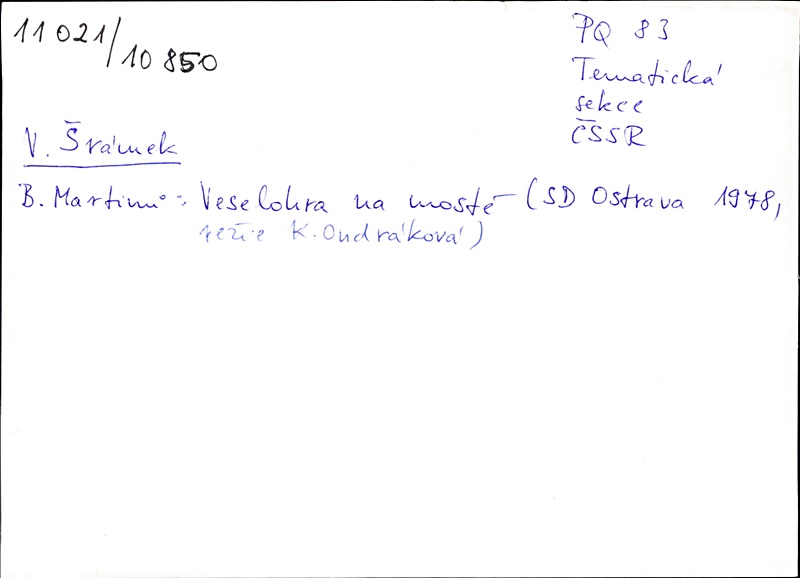 11 021/10 850
PQ 83
Tematická
sekce
ČSSR
V. Šrámek
B. Martinů: Veselohra na mostě (SD Ostrava 1978,
režie K. Ondráková)